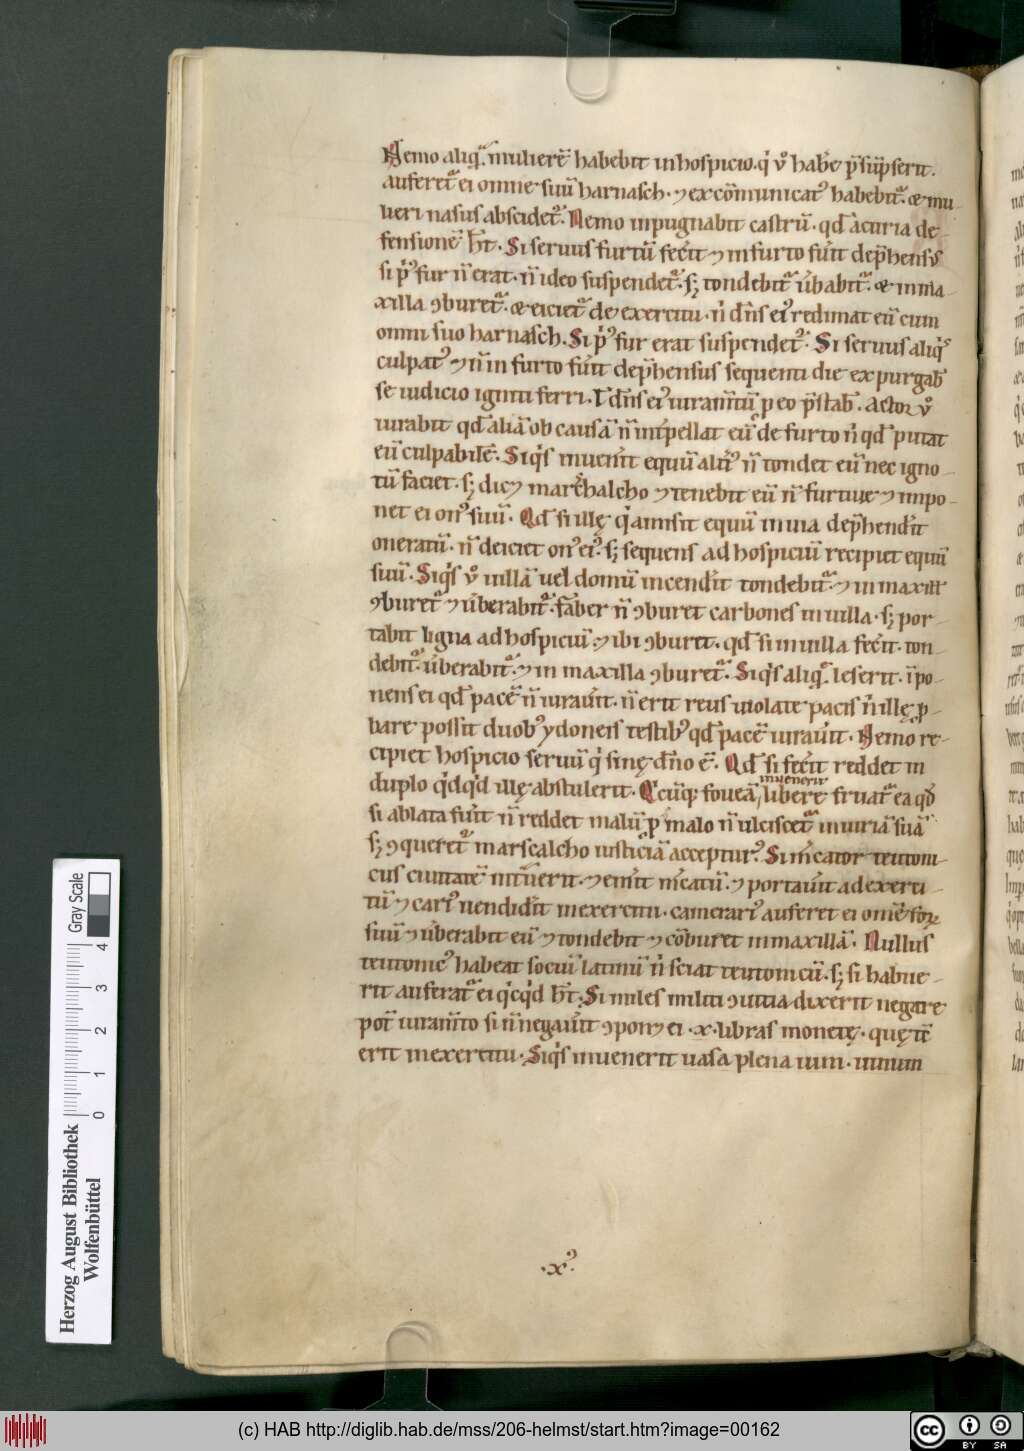 Nemo aliq̄ muliere̅ habebit in hospicio. q̍ v̊ habe p̄sūpserit.
auferet᷑ ei omne suu̅ harnasch. ⁊ exco̅municat᷒ habebit᷑. & mu
lieri nasus abscidet᷑. Nemo inpugnabit castru̅. qd̅ a curia de-
fensione̅ h̅t. Si seruus furtu̅ fec̅it ⁊ in furto fu̅it dep̅hensus
si p̍᷒ fur n̅ erat. n̅ ideo suspendet᷑. sꝫ tondebit᷑ u̅babit᷑. & in ma-
xilla ꝯburet᷑. & eiciet᷑ de exercitu. n̍ dn̅s ei᷒ redimat eu̅ cum
omni suo harnasch. Si p̍᷒ fur erat suspendet᷑. Si seruus aliq̍᷒
culpat᷒ ⁊ n̅ in furto fu̅it dep̅hensus sequenti die expurgab̅
se iudicio igniti ferri. ł dn̅s ei᷒ iuram̅tu̅ p eo p̅stab̅. Actor v̊
iurabit qd̅ alia̅ ob causa̅ n̅ int̅pellat eu̅ de furto n̍ qd̅ putat
eu̅ culpabile̅. Siq̍s inuen̅it equu̅ alt̅i᷒ n̅ tondet eu̅ nec igno-
tu̅ faciet. sꝫ dicꝫ mare̅halcho ⁊ tenebit eu̅ n̅ furtiue ⁊ impo-
net ei on᷒ suu̅. Qd̅ si illę q̍ amisit equu̅ in uia dep̅hend̅it
oneratu̅. n̅ deiciet on᷒ ei᷒. sꝫ sequens ad hospiciu̅ recipiet equu̅
suu̅. Siq̍s v̊ uilla̅ uel domu̅ incend̅it tondebit᷑. ⁊ in maxill̅
ꝯburet᷑ ⁊ u̅berabit᷑. fab̅er n̅ ꝯburet carbones in uilla. sꝫ por-
tabit ligna ad hospiciu̅ ⁊ ibi ꝯburet. qd̅ si in uilla fec̅it. ton-
debit᷑. u̅berabit᷑. ⁊ in maxilla ꝯburet᷑. Siq̍s aliq̄ leserit. i̅po-
nens ei qd̅ pace̅ n̅ iurau̅it. n̅ erit reus uiolate pacis n̍ illę p̱-
bare possit duob᷒ ydoneis testib᷒ qd̅ pace̅ iurau̅it. Nemo re-
cipiet hospicio seruu̅ q̍ sinę dn̅o e̅. Qd̅ si fec̅it reddet in
duplo q̍dq̍d illę abstulerit. Qicu̅q̨ fouea̅ inuenerit libere fruat᷑ ea qd̅
si ablata fu̅it n̅ reddet malu̅ p malo n̅ ulciscet᷑ iniuria̅ sua̅
sꝫ ꝯqueret᷑ marscalcho iusticia̅ accepturꝰ. Si m̅cator teutoni-
cus ciuitate̅ int̅uerit. ⁊ em̅it m̅catu̅. ⁊ portau̅it ad exerci-
tu̅ ⁊ cari᷒ uendid̅it in exercitu. camerari᷒ auferet ei om̅e foꝝ
suu̅ ⁊ u̅berabit eu̅ ⁊ tondebit ⁊ co̅buret in maxilla̅. Nullus
teutonic᷒ habeat sociu̅ latinu̅ n̍ sciat teutonicu̅. sꝫ si habue-
rit auferat᷑ ei q̍cq̍d h̅t. Si miles militi ꝯuitia dixerit negare
pot̅ iuram̅to si n̅ negau̅it ꝯponꝫ ei .x. libras monetę. quę tc̅
erit in exercitu. Siq̍s inuenerit uasa plena uini. uinum
.x᷒.
Herzog August Bibliothek
Wolfenbüttel
Gray Scale
0 1 2 3 4
(c) HAB http://diglib.hab.de/mss/206-helmst/start.htm?image=00162
cc BY SA